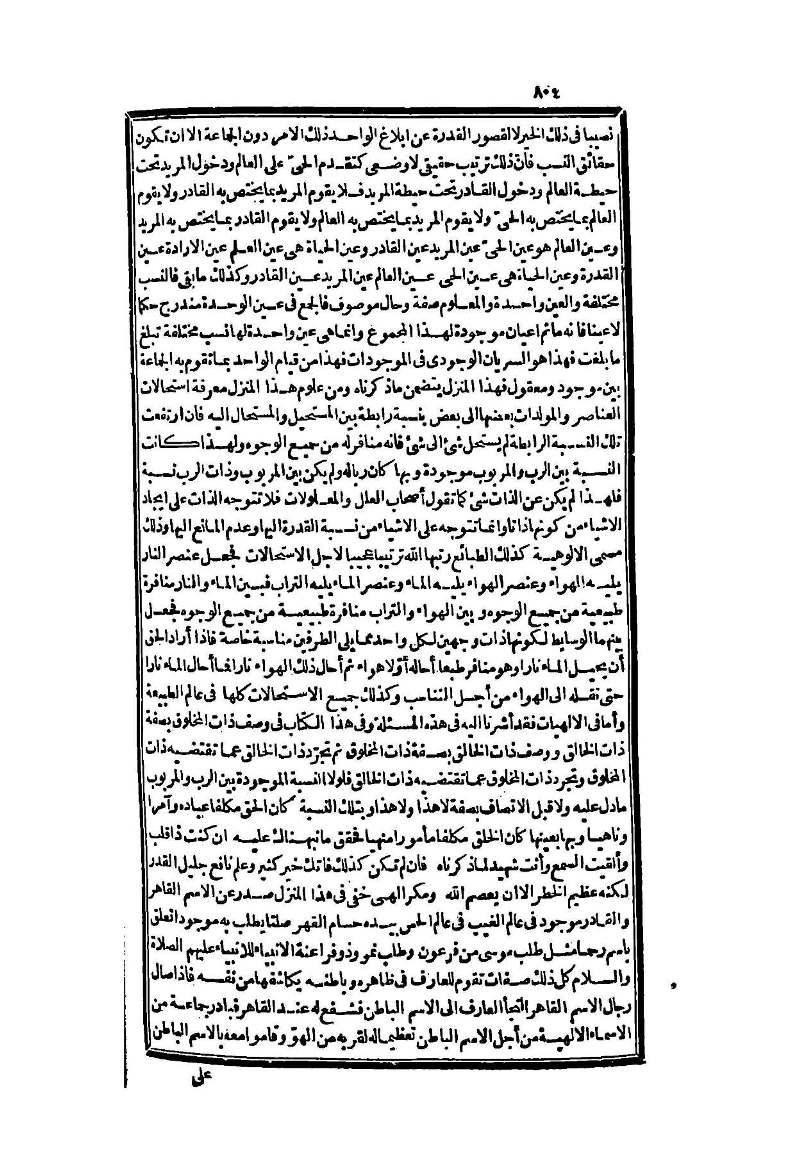 ٨٠٤
نصيبا فى ذلك الخير لا لقصور القدرة عن ابلاغ الواحد ذلك الامر دون الجماعة الا ان تكون
حقائق النسب فان ذلك ترتيب حقيقى لا وضعى كتقدم الحىّ على العالم ودخول المريد تحت
حيطة العالم ودخول القادر تحت حيطة المريد فلا يقوم المريد بما يختص به القادر ولا يقوم
العالم بما يختص به الحىّ ولا يقوم المريد بما يختص به العالم ولا يقوم القادر بما يختص به المريد
وعين العالم هو عين الحىّ عين المريد عين القادر وعين الحياة هى عين العلم عين الارادة عين
القدرة وعين الحياة هى عين الحى عين العالم عين المريد عين القادر وكذلك ما بقى فالنسب
مختلفة والعين واحدة والمعلوم صفة وحال موصوف فالجمع فى عين الوحدة مندرج حكما
لا عينا فانه ما ثم اعيان موجودة لهذا المجموع وانما هى عين واحدة لها نسب مختلفة تبلغ
ما بلغت فهذا هو السريان الوجودى فى الموجودات فهذا من قيام الواحد بما تقوم به الجماعة
بين موجود ومعقول فهذا المنزل يتضمن ما ذكرناه ومن علوم هذا المنزل معرفة استحالات
العناصر والمولدات بعضها الى بعض بنسبة رابطة بين المستحيل والمستحال اليه فان ارتفعت
تلك النسبة الرابطة لم يستحل شئ الى شئ فانه منافر له من جميع الوجوه ولهذا كانت
النسبة بين الرب والمربوب موجودة وبها كان ربا له ولم يكن بين المربوب وذات الرب نسبة
فلهذا لم يكن عن الذات شئ كما تقول أصحاب العلل والمعلولات فلا تتوجه الذات على ايجاد
الاشياء من كونها ذاتا وانما تتوجه على الاشياء من نسبة القدرة اليها وعدم المانع اليها وذلك
مسمى الالوهية كذلك الطبائع رتبها الله ترتيبا عجيبا لاجل الاستحالات فجعل عنصر النار
يليه الهواء وعنصر الهواء يليه الماء وعنصر الماء يليه التراب فبين الماء والنار منافرة
طبيعية من جميع الوجوه وبين الهواء والتراب منافرة طبيعية من جميع الوجوه فجعل
بينهما الوسايط لكونها ذات وجهين لكل واحد مما يلى الطرفين مناسبة خاصة فاذا أراد الحق
أن يحيل الماء نارا وهو منافر طبعا أحاله أوّلا هواء ثم أحال ذلك الهواء نارا فما أحال الماء نارا
حتى نقله الى الهواء من أجل التناسب وكذلك جميع الاستحالات كلها فى عالم الطبيعة
وأما فى الالهيات فقد أشرنا اليه فى هذه المسئلة وفى هذا الكتاب فى وصف ذات المخلوق بصفة
ذات الخالق ووصف ذات الخالق بصفة ذات المخلوق ثم تجرّد ذات الخالق عما تقتضيه ذات
المخلوق وتجرد ذات المخلوق عما تقتضيه ذات الخالق فلولا النسبة الموجودة بين الرب والمربوب
ما دل عليه ولا قبل الاتصاف بصفة لا هذا ولا هذا وبتلك النسبة كان الحق مكلفا عباده وآمرا
وناهيا وبها بعينها كان الخلق مكلفا مأمورا منهيا فحقق ما نبهناك عليه ان كنت ذا قلب
وألقيت السمع وأنت شهيد لما ذكرناه فان لم تكن كذلك فاتك خير كثير وعلم نافع جليل القدر
لكنه عظيم الخطر الا ان يعصم الله ومكر الهى خفى فى هذا المنزل صدر عن الاسم القاهر
والقادر موجود فى عالم الغيب فى عالم الحس بيده حسام القهر صلتا يطلب به موجودا تعلق
باسم رجا مثل طلب موسى من فرعون وطلب نمرود وفراعنة الانبياء للانبياء عليهم الصلاة
والسلام كل ذلك صفات تقوم للعارف فى ظاهره وباطنه يكاشفها من نفسه فاذا صال
رجال الاسم القاهر التجأ العارف الى الاسم الباطن فشفع له عند القاهر فبادر جماعة من
الاسماء الالهية من أجل الاسم الباطن تعظيما له لقربه من الهو وقاموا معه بالاسم الباطن
على